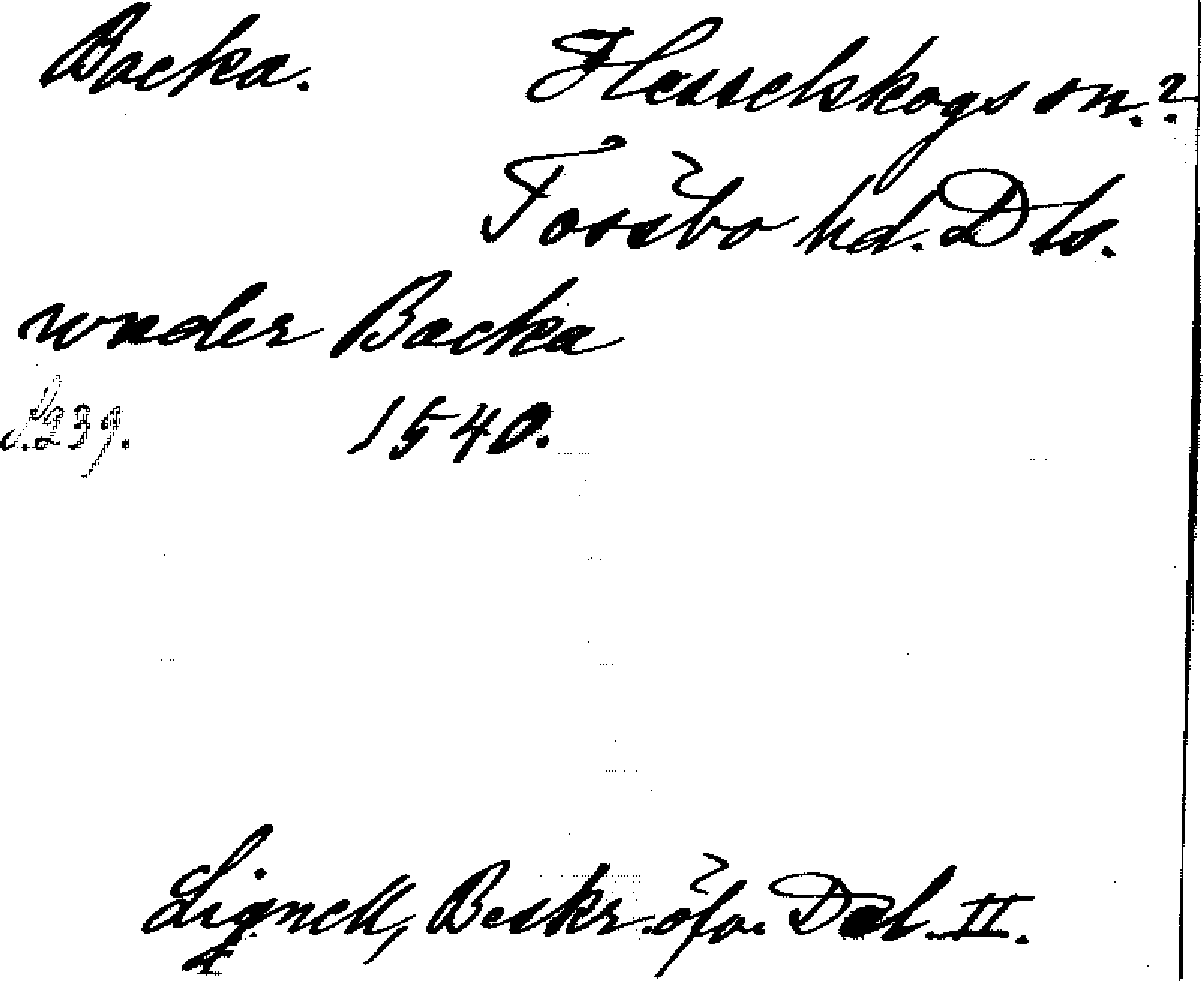 Backa. Hesselskogs sn.?
Tössbo hd. Dls.
wnder Backa
S. 239. 1540.
Lignell, Beskr. öfv. Dal. II.